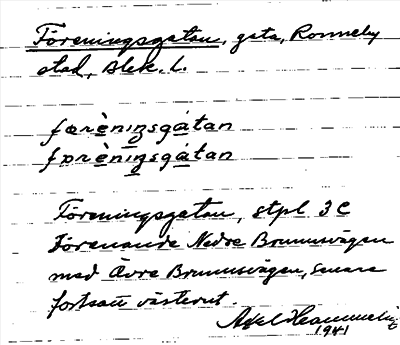 Föreningsgatan, gata, Ronneby
stad, Blek. l.
færèningsgátan
fprèningsgátan
Föreningsgatan, stpl 3C
Förenande Nedre Brunnsvägen
med Övre Brunnsvägen, senare
fortsatt västerut.
Axel
1941